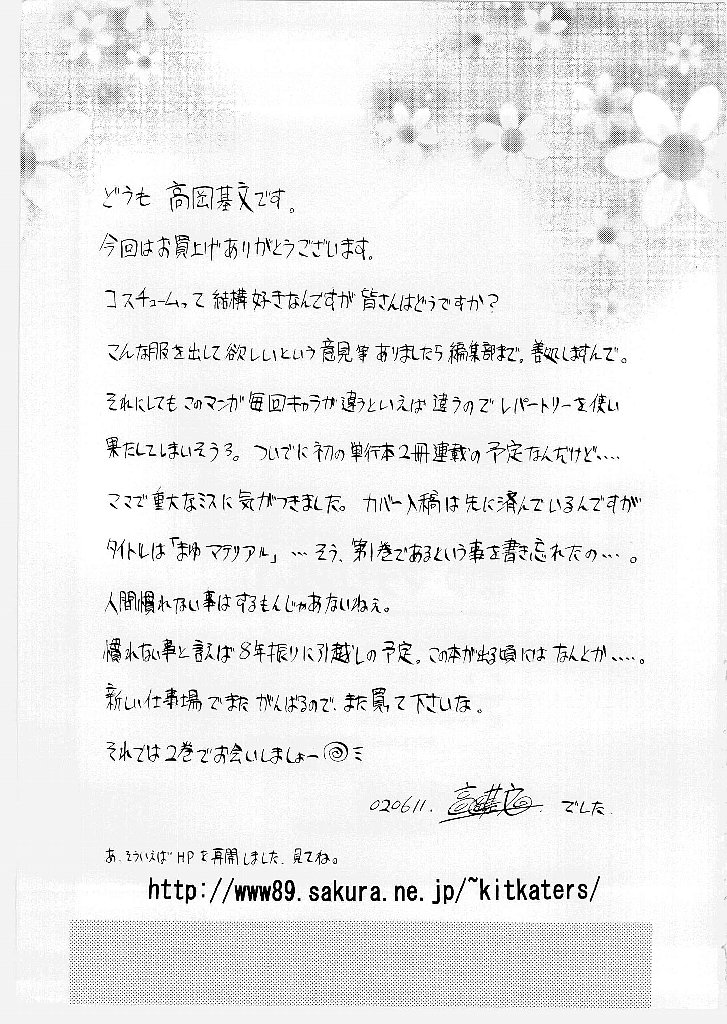 どうも 高岡基文です。
今回はお買上げありがとうございます。
コスチュームって結構好きなんですが皆さんはどうですか?
こんな服を出して欲しいという意見等ありましたら編集部まで。善処しますんで。
それにしてもこのマンガ毎回キャラが違うといえば違うのでレパートリーを使い
果たしてしまいそうろ。ついでに初の単行本2冊連載の予定なんだけど・・・・
ママで重大なミスに気がつきました。カバー入稿は先に済んでいるんですが
タイトルは「まゆマテリアル」…そう、第1巻であるという事を書き忘れたの…。
人間慣れない事はするもんじゃあないねぇ。
慣れない事と言えば8年振りに引越しの予定。この本が出る頃にはなんとか・・・・。
新しい仕事場でまたがんばるので、また買って下さいな。
それでは2巻でお会いしましょー
020611. 高岡基文 でした.
あ、そういえばHPを再開しました、見てね。
http://www89.sakura.ne.jp/~kitkaters/